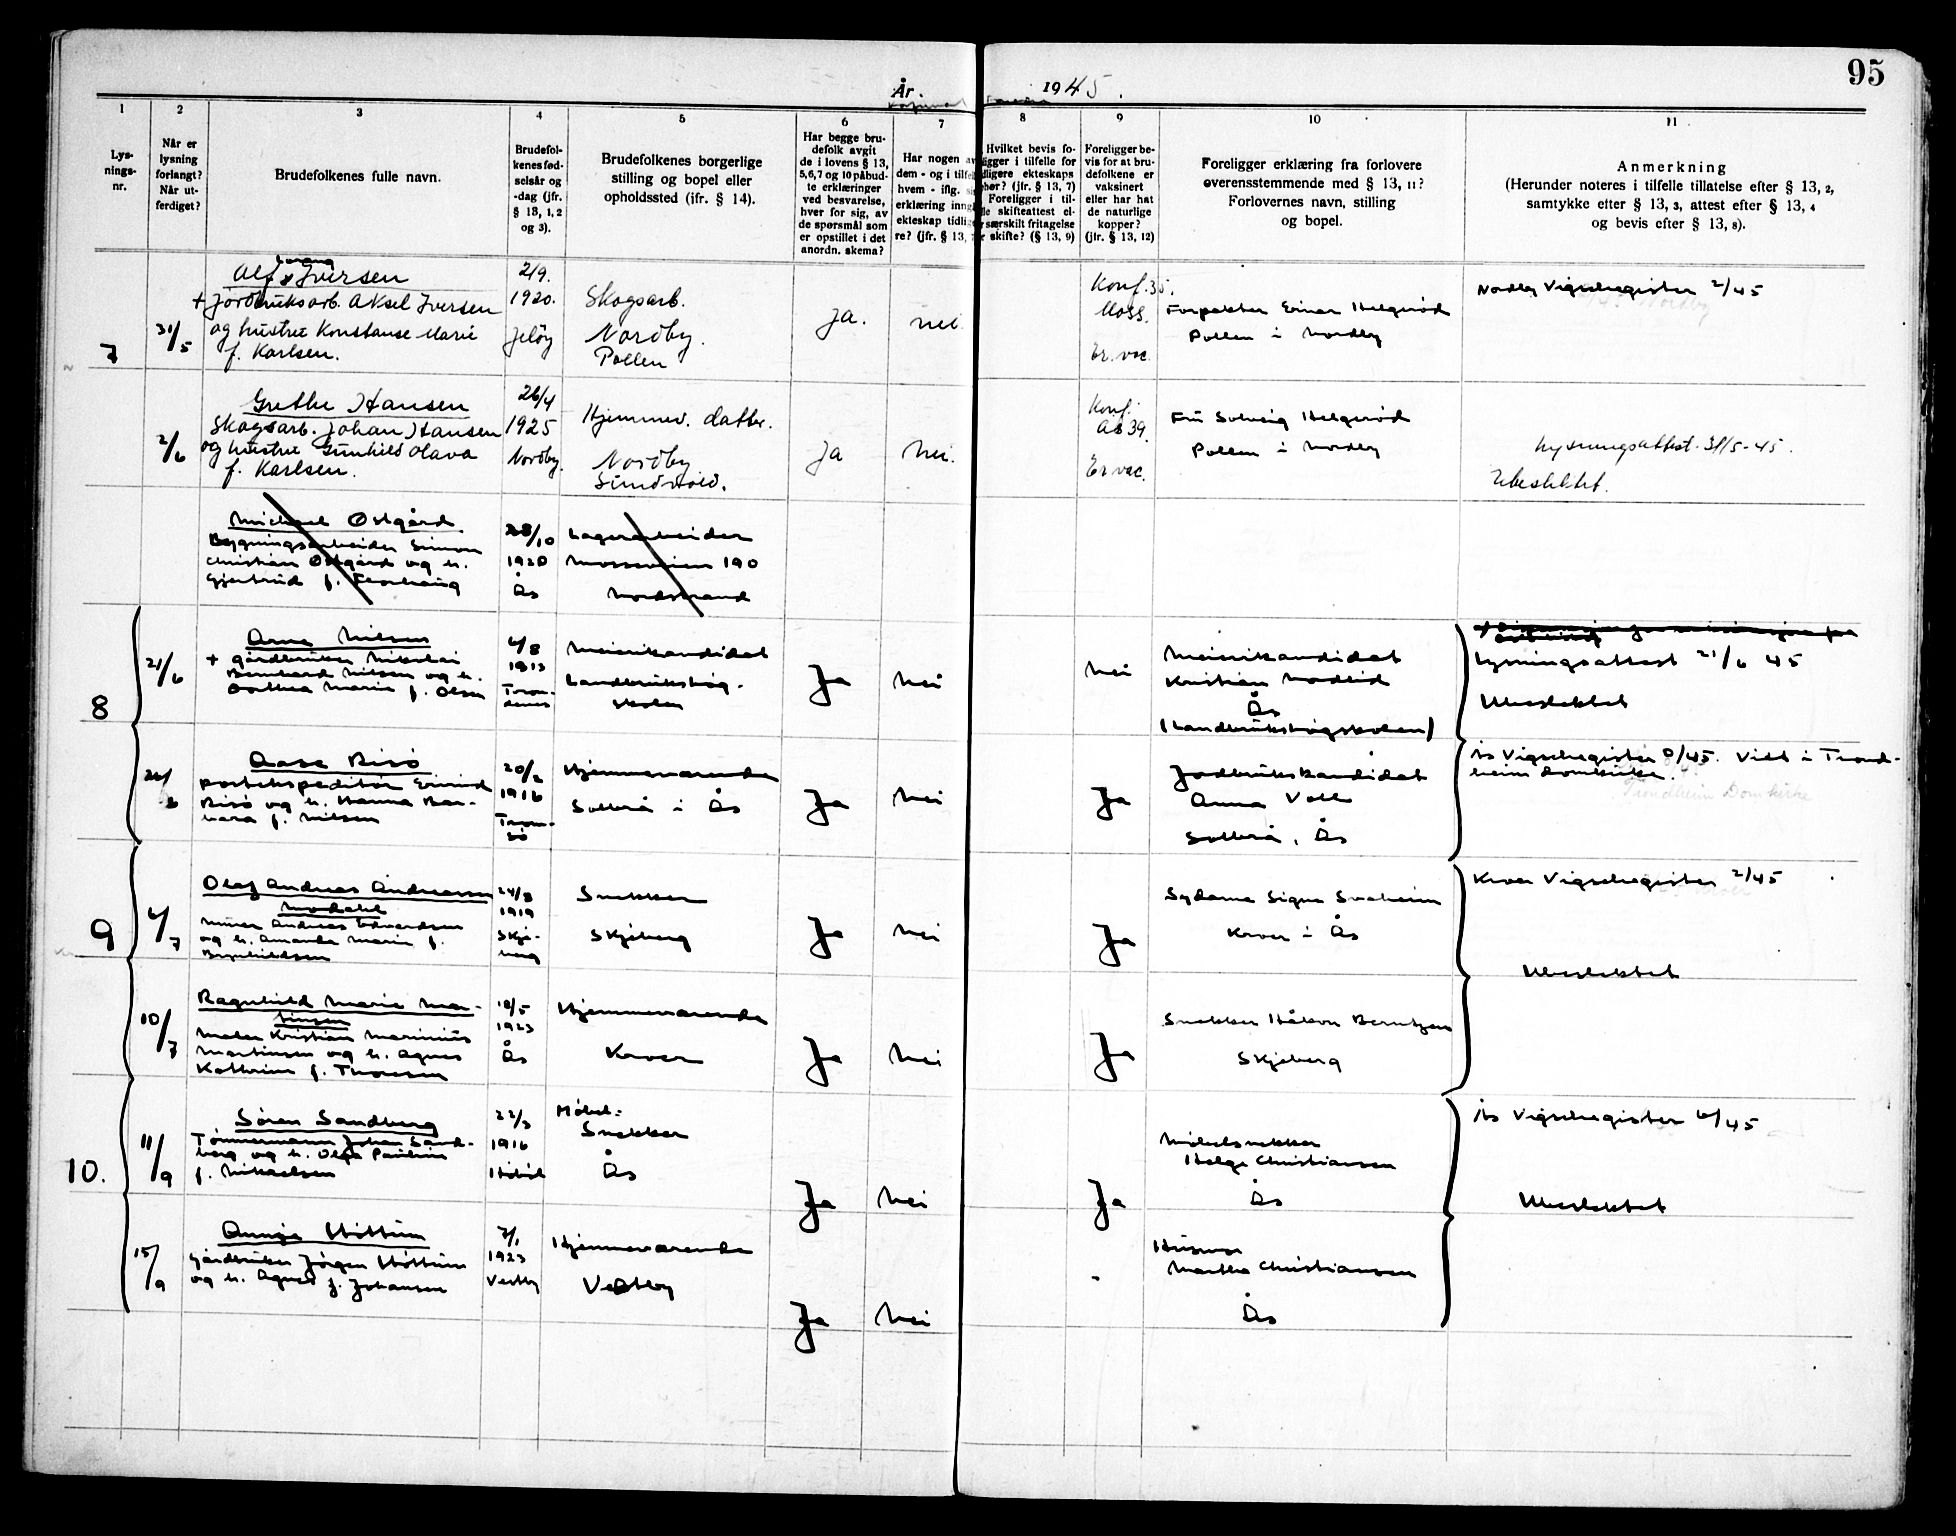 95
År. 1945.
1
2
3
4
5
6
7
8
9
10
11
Lys-
nings-
nr.
Når er
lysning
forlangt?
Når ut-
ferdiget?
Brudefolkenes fulle navn.
Brudefol-
kenes fød-
selsår og
-dag (jfr.
§ 13, 1, 2
og 3).
Brudefolkenes borgerlige
stilling og bopel eller
opholdssted (ifr. § 14).
Har begge bru-
defolk avgit
de i lovens § 13,
5,6,7 og 10 påbud-
te erklæringer
ved besvarelse,
hver for sig, av
de spørsmål som
er opstillet i det
anordn. skema?
Har nogen av
dem - og i tilfel
hvem - iflg. si
erklæring inng
ekteskap tidlig
re? (jfr. § 13,
Hvilket bevis fo-
ligger i tilfelle for
dligere ekteskaps
phør? (jfr. § 13, 7)
Foreligger i til-
lle skifteattest el-
særskilt fritagelse
r skifte? (§ 13, 9)
Foreligger be-
vis for at bru-
defolkene er
vaksinert
eller har hat
de naturlige
kopper?
(jfr. § 13, 12)
Foreligger erklæring fra forlovere
overensstemmende med § 13, 11?
Forlovernes navn, stilling
og bopel.
Anmerkning
(Herunder noteres i tilfelle tillatelse efter § 13, 2,
samtykke efter § 13, 3, attest efter § 13, 4
og bevis efter § 13, 8).
7
31/5
Alf Iversen
+ jordbruksarb. Aksel Iversen
og hustru Konstanse Marie
f. Karlsen.
2/9.
1920.
Jeløy
Skogsarb.
Nordby.
Pollen
Ja.
nei.
Konf. 35.
Moss.
Er. vac.
Forpakter Einar Helgerød
Pollen i Nordby
Nordby Vigselregister 2/45
2/6
Grethe Hansen
Skogsarb. Johan Hansen
og hustru Gunhild Olava
f. Karlsen.
26/4
1925
Nordby.
Hjemmev. datter.
Nordby
Ja
Nei.
Konf.
Ås 39.
Er vac.
Fru Solveig Helgerød
Pollen i Nordby
Lysningsattest 31/5-45.
Ubeslektet.
Michael Østgård
Bygningsarbeider Simon
Christian Østgård og h.
Gjertrud f.
28/10
1920
Ås
Lagerarbeider
Mosseveien 190
Nordstrand
8
21/6
Arne Nilsen
+ gårdbruker Nikolai
Bernhard Nilsen og h.
Dorthea Marie f. Olsen
4/8
1913
Tron-
denes
Meierikandidat
Landbrukshøg-
skolen
Ja
Nei
Nei
Meierikandidat
Kristian Nordlid
Ås
(Landbrukshøgskolen)
Lysningsattest 21/6 45
Ubeslektet
Aase Risø
postekspeditør Eivind
Risø og h. Hanna Bar-
bara f. Nilsen
20/2
1916
Trom-
sø
Hjemmeværende
Solbrå i Ås
Ja
Nei
Ja
Jordbrukskandidat
Anna Voll
Solbrå, Ås
Ås Vigselregister 8/45. Viet i Trond-
heim domkirke.
Trondheim Domkirke
9
6/7
Olaf Andreas Andreassen
Murer Andreas Edvardsen
og h. Amanda Marie f.
Brynhildsen
24/8
1919
Skje-
berg
Snekker
Skjeberg
Ja
Nei
Ja
Sydame Signe Solheim
Kroer i Ås
Kroer Vigselregister 2/45
Ubeslektet
10/7
Ragnhild Marie Mar-
tinsen
Maler Kristian Marinius
Martinsen og h. Agnes
Kathrine f. Thoresen
18/5
1923
Ås
Hjemmeværende
Kroer
Ja
Nei
Ja
Snekker Håkon Berntzen
Skjeberg
10.
11/9
Søren Sandberg
Tømmermann Johan Sand-
berg og h. Olga Pauline
f. Mikaelsen
22/3
1916
Hobøl
Møbel-
Snekker
Ås
Ja
Nei
Ja
Møbelsnekker
Helge Christiansen
Ås
Ås Vigselregister 6/45
Ubeslektet
15/9
Gårdbruker Jørgen
og h. Agnes f. Johansen
7/1
1923
Vestby
Hjemmeværende
Vestby
Ja
Nei
Husmor
Martha Christiansen
Ås